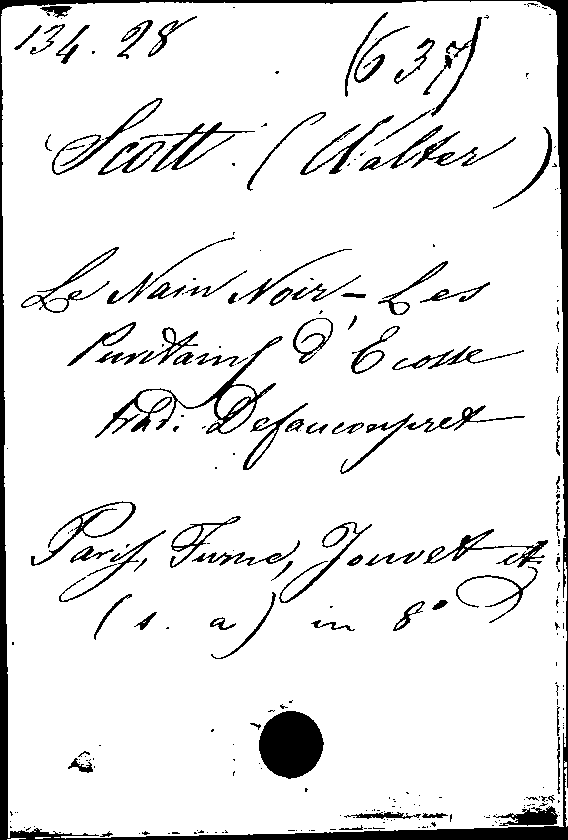 134. 28 (637)
Scott. (Walter)
Le Nain Noir - Les
Puritains d'Ecosse
trad: Defauconpret
Paris, Furne, Jouvet et
(s. a) in 8°